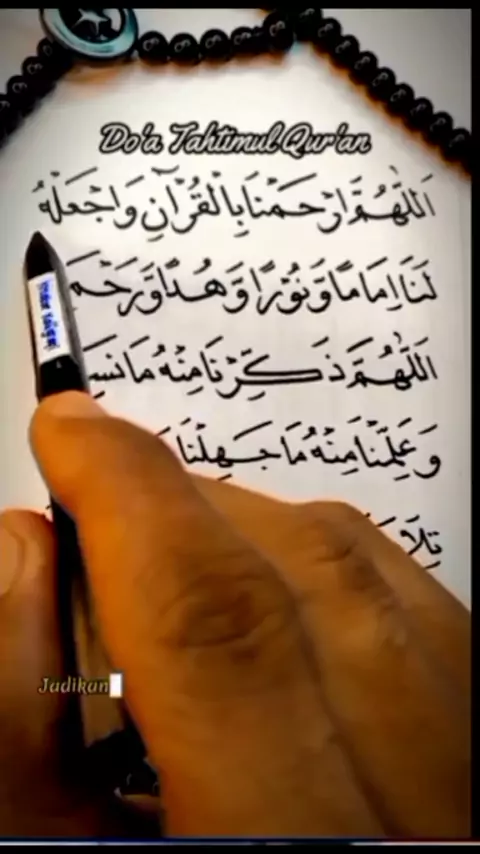 Do'a Tahtimul Qur'an
اَللّٰهُمَّ ارْحَمْنَا بِالْقُرْآنِ وَاجْعَلْهُ
لَنَا اِمَامًا وَّنُوْرًا وَّهُدًا وَّرَحْمَ
اَللّٰهُمَّ ذَكِّرْنَا مِنْهُ مَا نَسِ
وَعَلِّمْنَا مِنْهُ مَا جَهِلْنَا
تِلَا
Jadikan